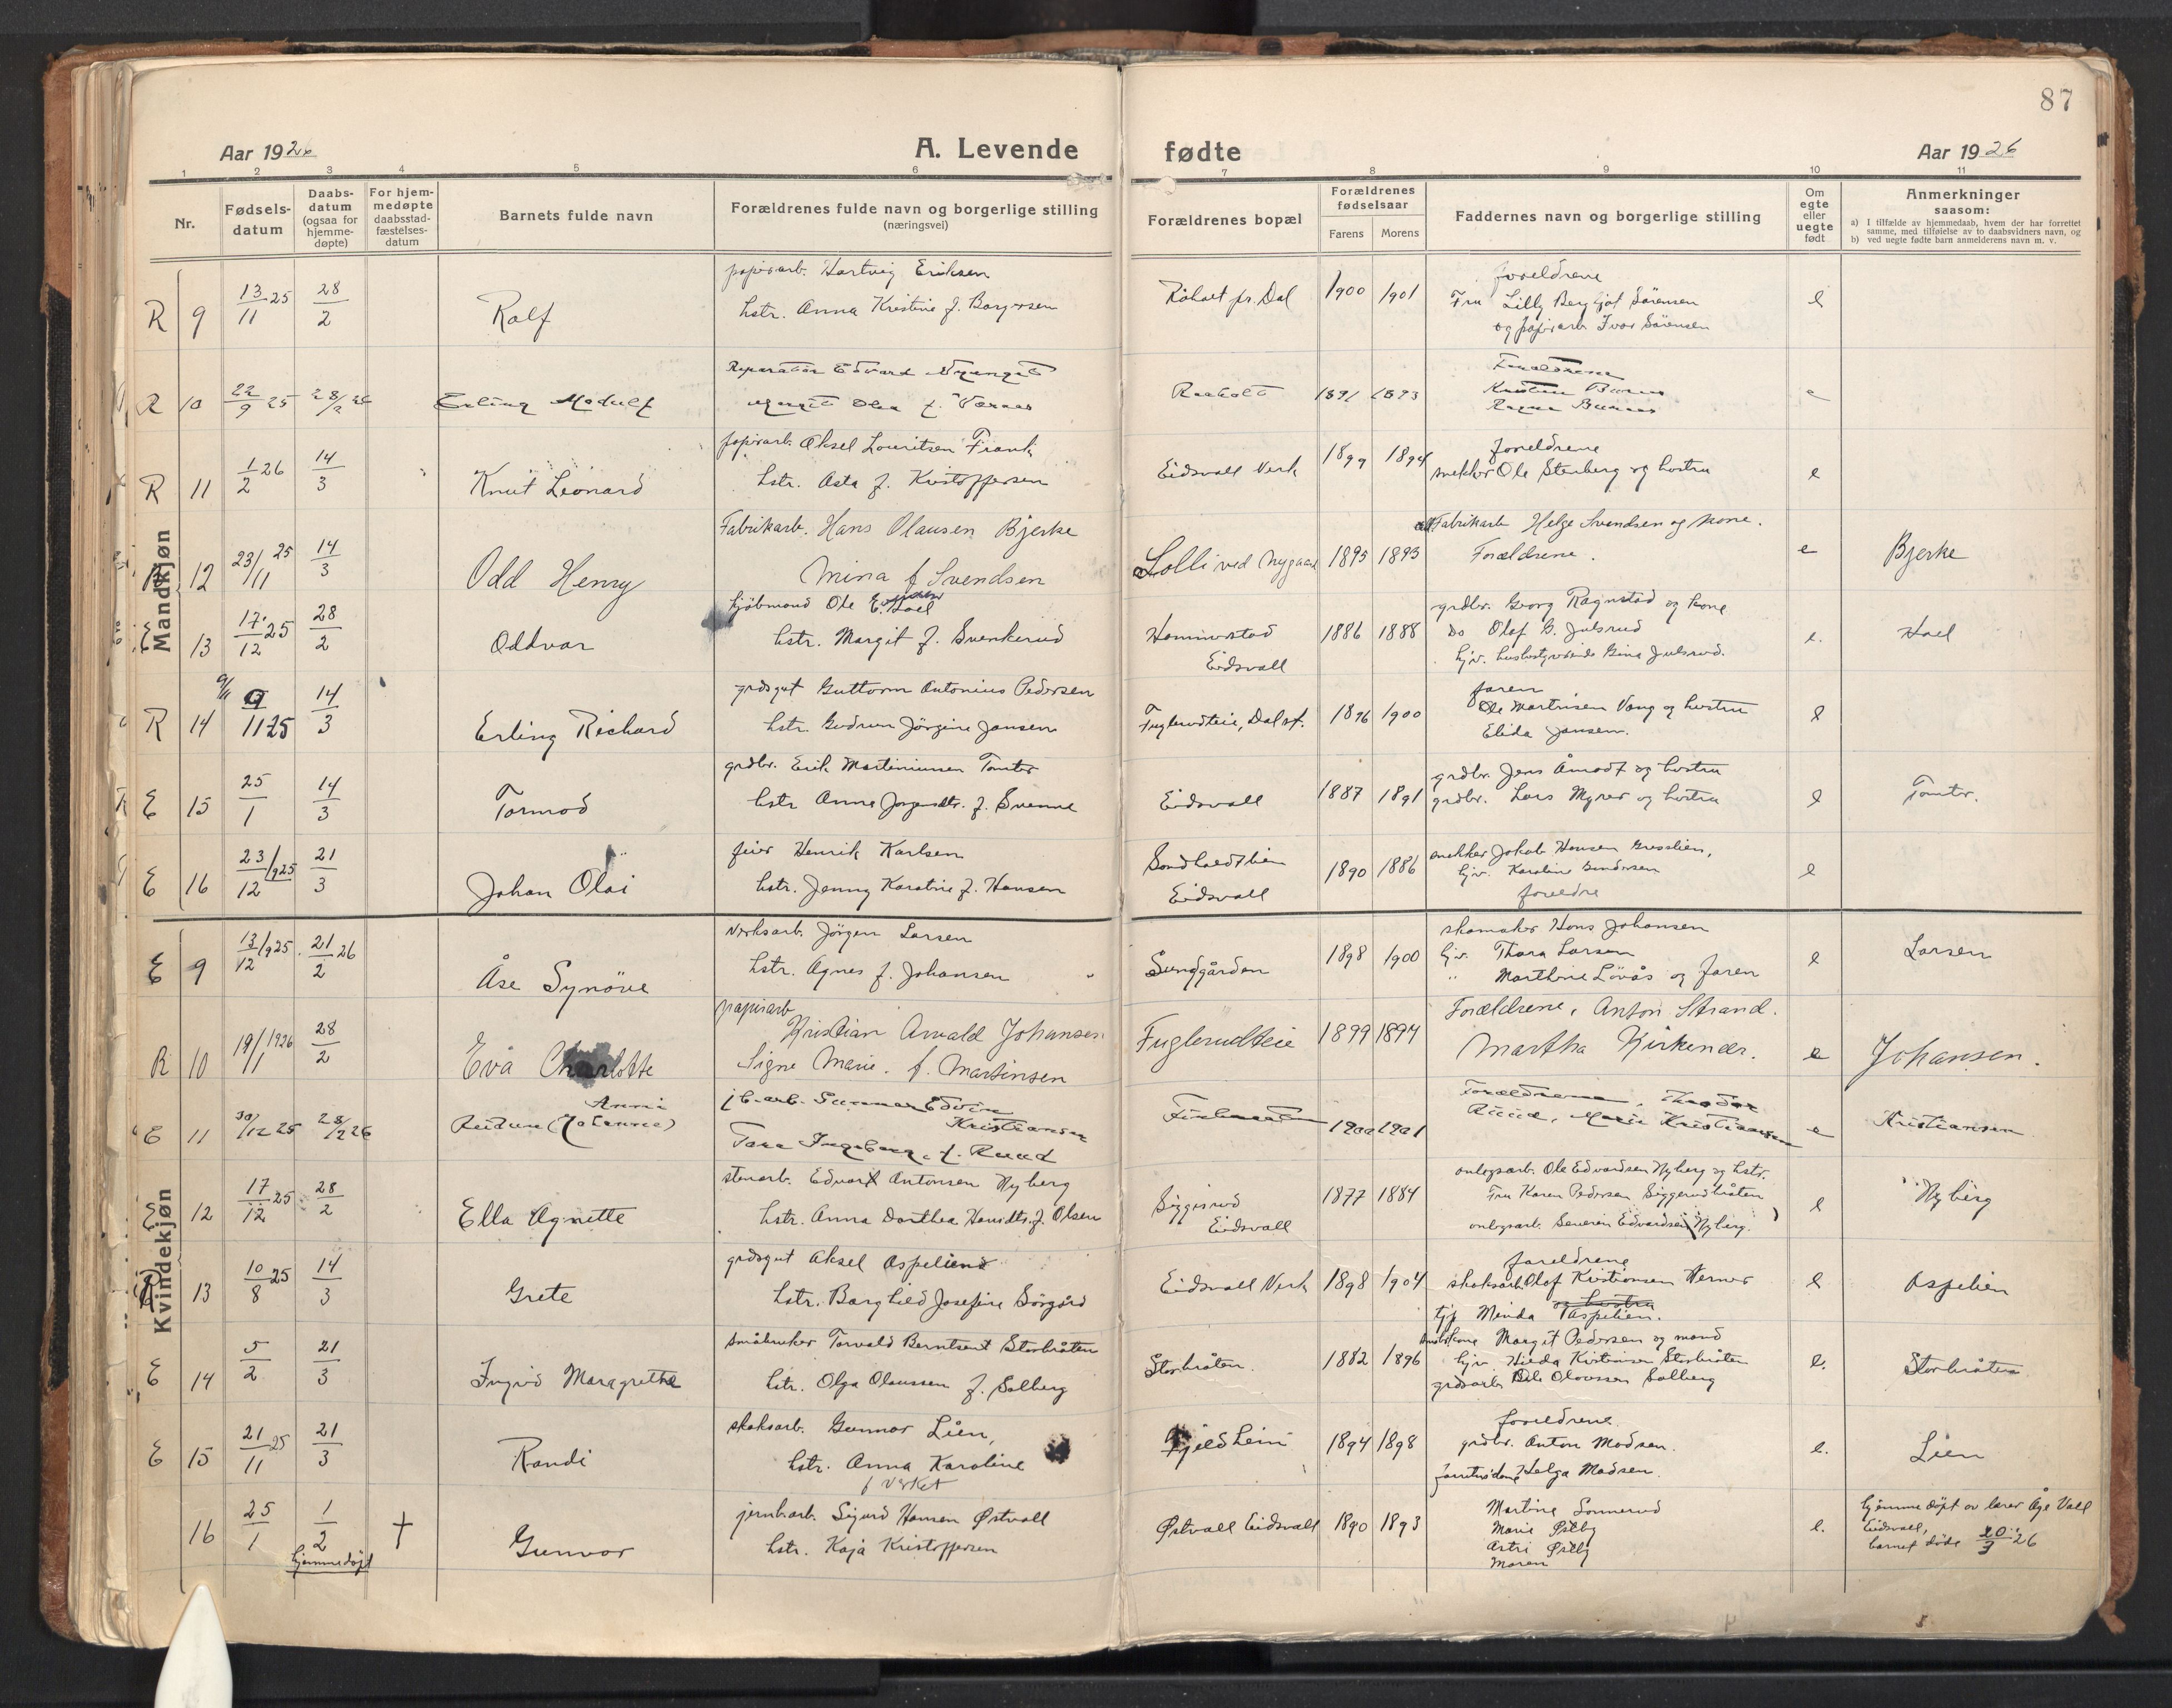 87
Aar 1926
A. Levende
fødte
Aar 1926
1 2 3 4 5 6 7 8 9 10 11
Nr.
Fødsels-
datum
Daabs-
datum
(ogsaa for
hjemme-
døpte)
For hjem-
medøpte
daabsstad-
fæstelses-
datum
Barnets fulde navn
Forældrenes fulde navn og borgerlige stilling
(næringsvei)
Forældrenes bopæl
Forældrenes
fødselsaar
Farens Morens
Faddernes navn og borgerlige stilling
Om
egte
eller
uegte
født
Anmerkninger
saasom:
a) I tilfælde av hjemmedaab, hvem der har forrettet
samme, med tilføielse av to daabsvidners navn, og
b) ved uegte fødte barn anmelderens navn m. v.
Mandkjøn
R 9 13/11 25 28/2 Rolf
papirarb. Hartvig Eriksen
hstr. Anna Kristine f. Borgersen
Råholt pr. Dal 1900 1901
foreldrene
Fru Lilly Bergljot Sørensen
og papirarb Ivar Sørensen
e
R 10 22/9 25 28/2 26 Erling Modulf
Reparatør Edvard
Margit Olea f.
Raaholt 1891 1893
Forældrene
e
R 11 1/2 26 14/3 Knut Leonard
papirarb. Aksel Louritsen Frank
hstr. Asta f. Kristoffersen
Eidsvall Verk 1899 1894
foreldrene
snekker Ole Stenberg og hustru
e
R 12 23/11 25 14/3 Odd Henry
Fabrikarb. Hans Olausen Bjerke
Mina f Svendsen
Lolli ved Nygaard 1895 1893
Fabrikarb Helge Svendsen og kone.
Forældrene.
e Bjerke
E 13 17/12 25 28/2 Oddvar
kjøbmand Ole E. Hoel
hstr. Margit f. Svenkerud
Hammerstad
Eidsvall
1886 1888
grdbr. Georg Ragnstad og kone
Do Olaf B. Julsrud
hjv. husbestyrerinde Gina Julsrud.
e. Hoel
R 14 9/11 9/11 25 14/3 Erling Richard
grdsgut Guttorm Antonius Pedersen
hstr. Gudrun Jørgine Jansen
Fuglerudteie, Dal st. 1896 1900
faren
Ole Martinsen Vang og hustru
Elida Jansen.
e
E 15 25/1 14/3 Tormod
grdbr. Erik Martiniussen Tomter
hstr Anna Jørgensdtr. f. Svenne
Eidsvall 1887 1891
grdbr. Jens Åmodt og hustru
grdbr. Lars Myrer og hustru
e Tomter.
E 16 23/12 1925 21/3 Johan Olai
feier Henrik Karlsen
hstr. Jenny Karoline f. Hansen
Eidsvall
1890 1886
snekker Jakob Hansen Greselien,
hjv. Karoline Gundersen
foreldre
e
Kvindekjøn
E 9 13/12 1925 21/2 26 Åse Synöve
verksarb. Jörgen Larsen
hstr. Agnes f. Johansen
Sundgården 1898 1900
skomaker Hans Johansen
hjv. Thora Larsen
" Marthine Lövås og faren
e Larsen
R 10 19/11 1926 28/2 Eva Charlotte
papirarb
Kristian Arvald Johansen
Signe Marie. f. Martinsen
Fuglerudteie 1899 1894
Forældrene, Anton Strand.
Martha Kirkener.
e Johansen.
E 11 30/12 25 28/2 26
Anni
Reidun (Johanne)
jb-arb. Gunnar Edvin
Kristiansen
Tora Ingeborg. f. Ruud
1900 1901
Forældrene, Theodor
Ruud, Marie Kristiansen
e Kristiansen
E 12 17/12 25 28/2 Ella Agnette
stenarb. Edvart Antonsen Nyberg
hstr. Anna Dorthea f. Olsen
Siggerud
Eidsvall
1877 1884
anlegsarb. Ole Edvardsen Nyberg og hstr.
Fru Karen Pedersen Siggerudbråten
anlegsarb. Severin Edvardsen Nyberg.
e Nyberg
R 13 10/8 25 14/3 Grete
grdsgut Aksel Aspelien
hstr. Borghild Josefine Sörgård
Eidsvall Verk 1898 1904
foreldrene
skoksarb Olaf Kristiansen Verner
og hustru
tjp Minda Aspelien.
e Aspelien
E 14 5/2 21/3 Ingrid Maragrethe
småbruker Torvald Berntsen Storbråten
hstr. Olga Olaussen f. Solberg
Storbråten. 1882 1896
Margit Pedersen og mand
hjv. Hilda Kristiansen Storbråten
grdsarb Ole Olaussen Solberg
e. Storbråten
E 15 21/11 25 21/3 Randi
skoksarb. Gunnar Lien,
hstr. Anna Karoline
f Verket
Fjeldheim 1894 1898
foreldrene
grdbr. Anton Madsen.
Helga Madsen.
e. Lien
16 25/1 1/2 † Gunvor
hjemmedøpt
jernbarb. Sigurd Hansen Østvoll
hstr. Kaja Kristoffersen
Østvall Eidsvall 1890 1893
Martine Sonnerud
Marie Østby
Astri Østby
Moren
e.
hjemmedøpt av lærer Åge Vall
Eidsvall,
barnet døde 20/3 26